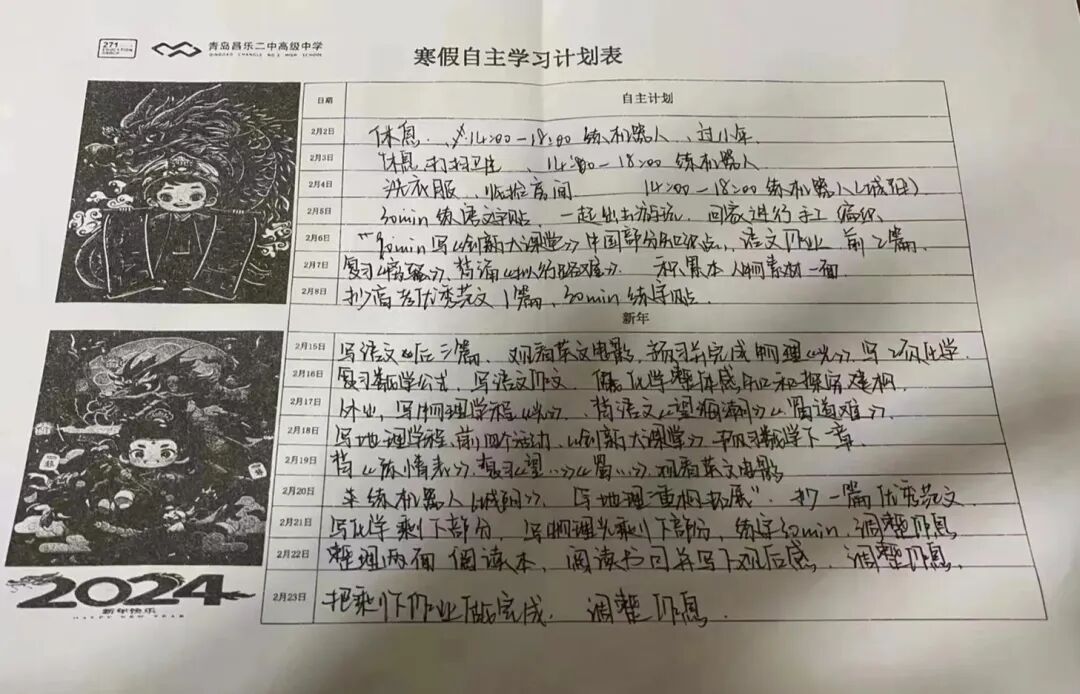 271 EDUCATION GROUP
青岛昌乐二中高级中学
QINGDAO CHANGLE NO.2 HIGH SCHOOL
寒假自主学习计划表
日期 自主计划
2月2日 休息. 14:00-18:00 练机器人、过小年.
2月3日 休息 打扫卫生、14:00-18:00 练机器人
2月4日 洗衣服、房间 14:00-18:00 练机器人
2月5日 30min 练语文字贴 一起出去 回家进行手工编织.
2月6日 30min 写《创新大课堂》中国部分知识点, 语文作业 前2篇.
2月7日 复习《》, 背诵《拟行路难》. 积累本 人物素材一面.
2月8日 抄高考优秀范文1篇, 30min 练字贴.
新年
2月15日 写语文后三篇、观看英文电影, 预习并完成物理《光》, 写2页化学.
2月16日 复习数学公式. 写语文作文. 做化学整体感知和探究建构.
2月17日 外出, 写物理学程《光》. 背语文《望海潮》《蜀道难》.
2月18日 写地理学程 前四个运动.《创新大课堂》 预习数学下一章.
2月19日 背《陈情表》, 复习《望…》《蜀…》观看英文电影
2月20日 练机器人 写地理"重构拓展". 抄一篇优秀范文.
2月21日 写化学剩下部分. 写物理光剩下部分, 练字30min, 调整作息
2月22日 整理两面阅读本, 阅读书刊并写下观后感, 调整作息.
2月23日 把剩下作业做完成. 调整作息.
2024
新年快乐
HAPPY NEW YEAR